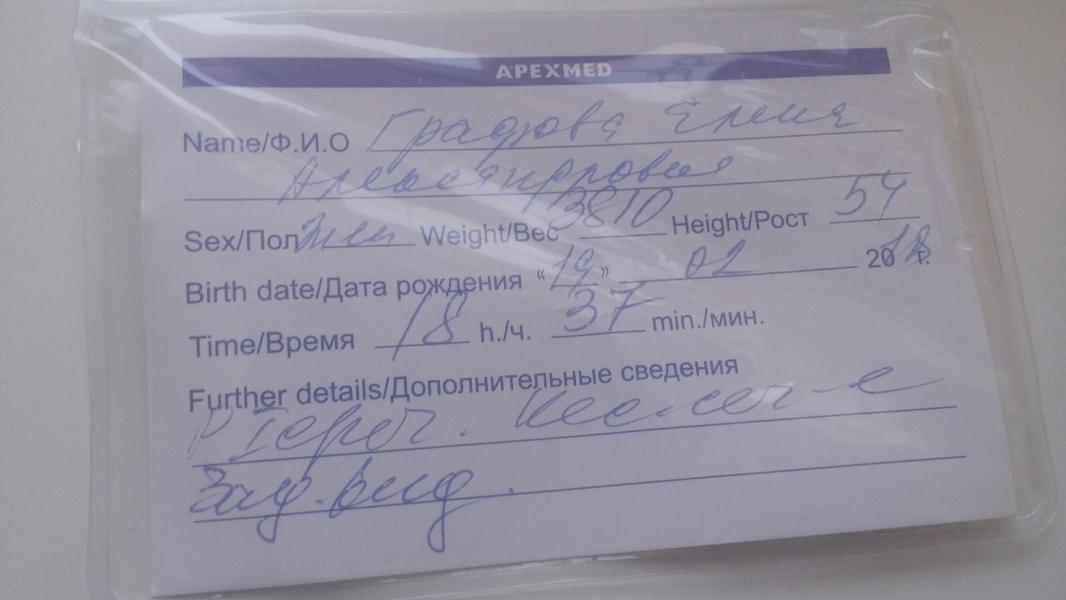 APEXMED
Name/Ф.И.О Графова Елена
Александровна
Sex/Пол Жен Weight/Вес 3810 Height/Рост 54
Birth date/Дата рождения «19» 02 2018 г.
Time/Время 18 h./ч. 37 min./мин.
Further details/Дополнительные сведения
зад. вид.